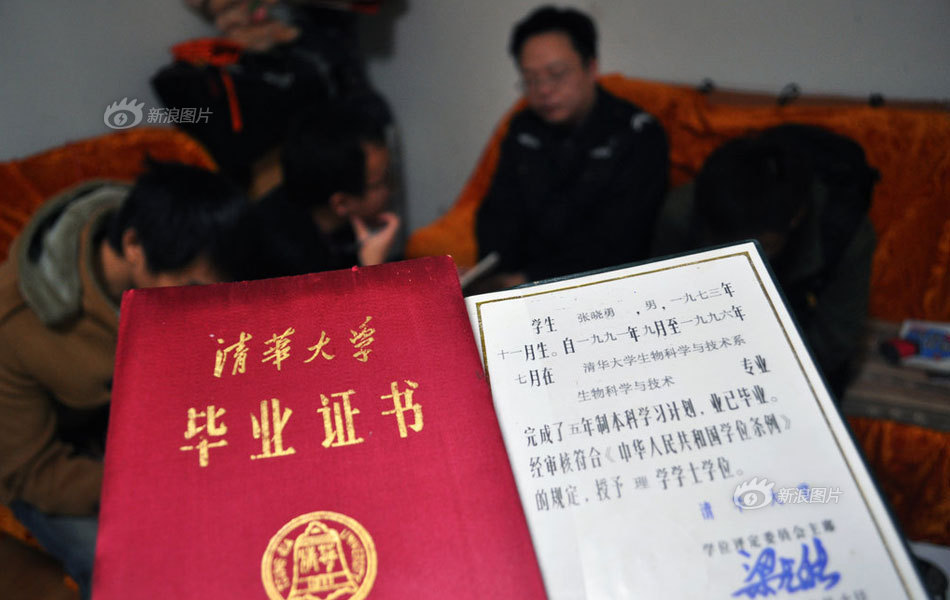 新浪图片
清华大学
毕业证书
学生 张晓勇 ,男,一九七三年
十一月生。自一九九一年九月至一九九六年
七月在 清华大学生物科学与技术系
生物科学与技术 专业
完成了五年制本科学习计划,业已毕业。
经审核符合《中华人民共和国学位条例》
的规定,授予 理 学学士学位。
清
新浪图片
学位评定委员会主席